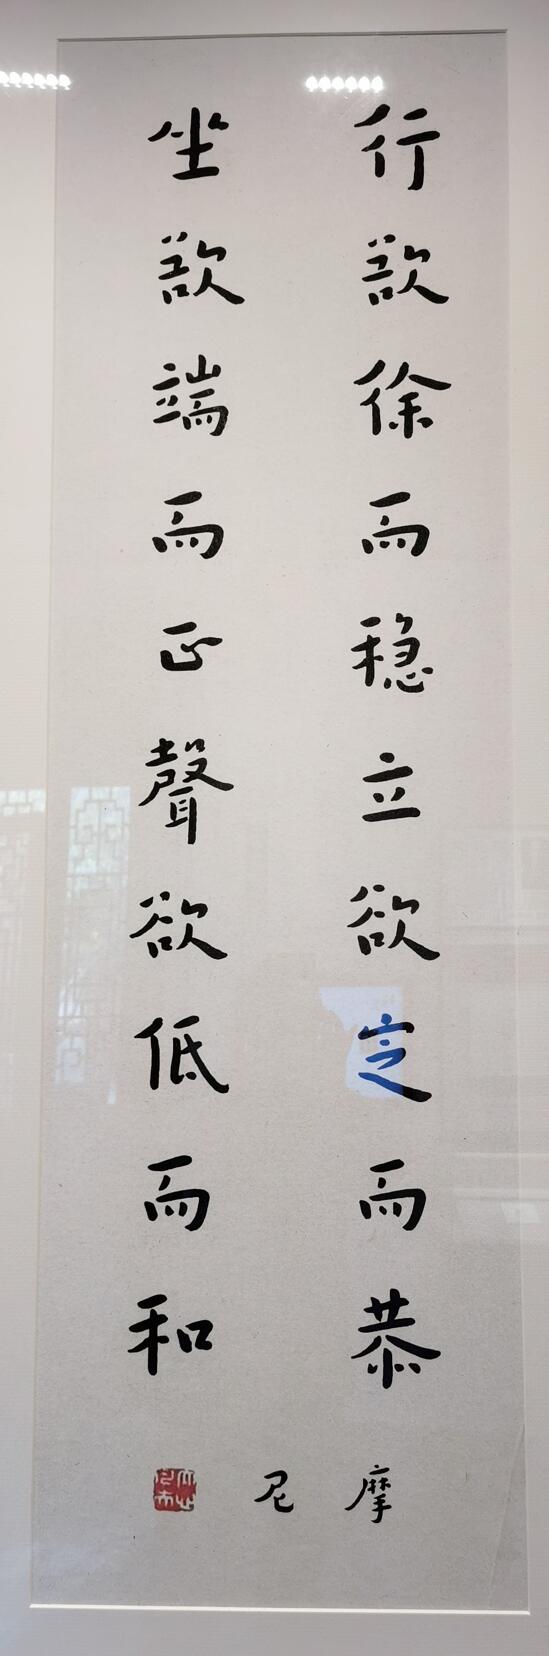 行欲徐而稳立欲定而恭
坐欲端而正聲欲低而和
摩尼